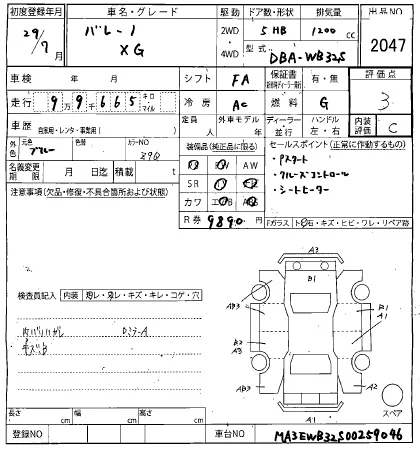 初度登録年月 車名・グレード 駆動 ドア数・形状 排気量 出品NO
29/7月 バレーノ XG 2WD 5 HB 1200 cc 2047
4WD 型式 DBA-WB32S
車検 年 月 シフト FA 保証書 有・無 評価点
走行 9万9千665 キロ マイル 冷房 AC 燃料 G 3
車歴 自家用・レンタ・事業用( ) 定員 人 外車モデル 年 ディーラー 並行 ハンドル 左・右 内装評価 C
外色 元色 ブルー 色替 カラーNO Z9Q 装備品(純正品に限る) セールスポイント(正常に作動するもの)
AW ・Pスタート
名義変更期限 月 日迄 積載 t SR ・クルーズコントロール
カワ ・シートヒーター
注意事項(欠品・修復・不具合箇所および状態) R券 9890円
Fガラス ト石・キズ・ヒビ・ワレ・リペア跡
A3
B1
検査員記入 内装 スレ・キズ・キレ・コゲ・穴 AB3
B1
A1
内バリハガレ
キズB
B2
A3
AB3 A2
A1
スペア
長さ cm 幅 cm 高さ cm
登録NO 車台NO MA3EWB32S00259046